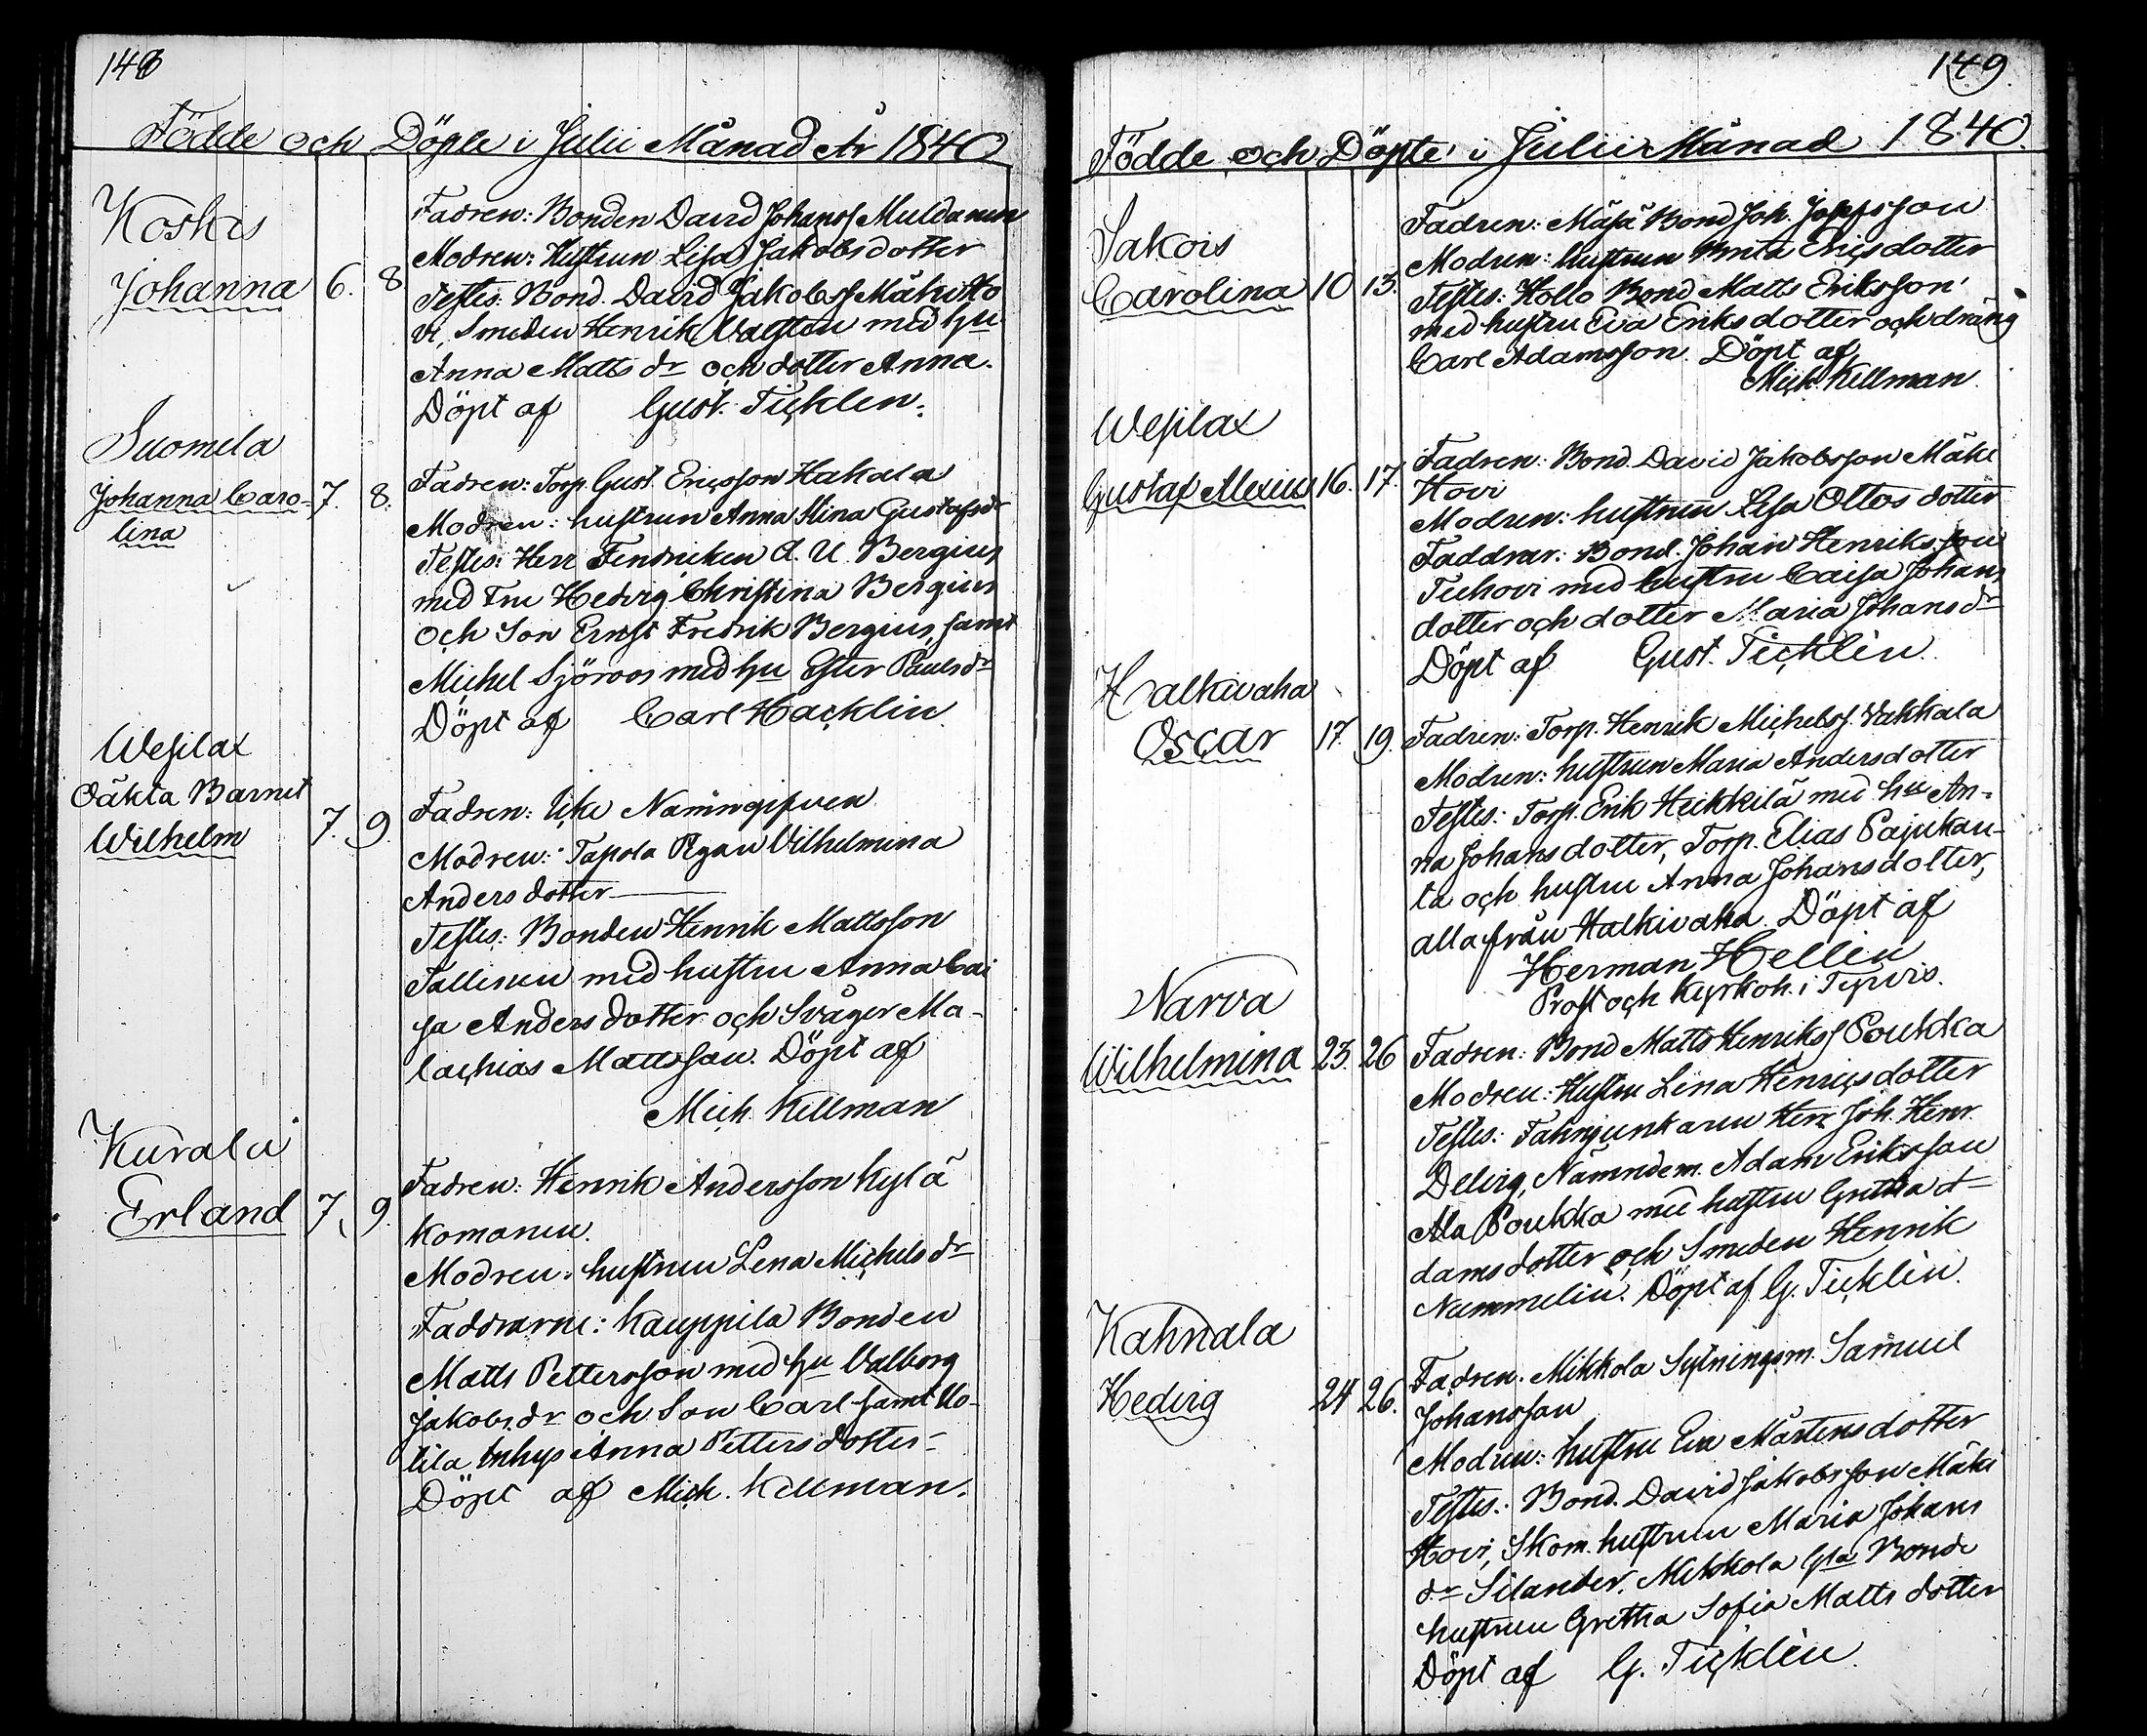 148
Födde och Döpte i Julii Månad År 1840
Koskis
Johanna 6. 8
Fadren: Bonden David Johanss Muldanen
Modren: Hustrun Lisa Jakobsdotter
Testes: Bond. David Jakobss Mäki Ho
vi, Smeden Henrik Valsten med hu
Anna Matts dr och dotter Anna.
Döpt af Gust. Ticklen.
Suomela
Johanna Caro- 7. 8.
lina
Fadren: Torp. Gust. Ericsson Hakala
Modren: hustrun Anna Stina Gustafsdr
Testes: Herr Fendriken A. U. Bergius
med Fru Hedvig Christina Bergius
och Son Ernst Fredrik Bergius, samt
Michel Sjöroos med hu Ester Paulsdr
Döpt af Carl Hacklin
Wesilax
Oäkta Barnet
Wilhelm 7. 9.
Fadren: Icke Namngifven
Modren: Tapola Pigan Vilhelmina
Andersdotter
Testes: Bonden Henrik Mattsson
Tallenen med hustru Anna Cai
sa Andersdotter och Svåger Ma-
lachias Mattsson. Döpt af
Mich. Killman
Kurala
Erland 7. 9.
Fadren: Henrik Andersson Kylä
komanen.
Modren: hustrun Lena Michelsdr
Faddrarne: Kauppila Bonden
Matts Pettersson med hu Valborg
Jakobsdr och Son Carl samt Uo-
tila Inhys Anna Petters dotter
Döpt af Mich. Killman.
149.
Födde och Döpte i Julii Månad 1840.
Sakois
Carolina 10 13.
Fadren: Mäsä Bond Joh. Josefsson
Modren: hustrun Brita Ericsdotter
Testes: Hollo Bond Matts Eriksson
med hustru Eva Eriksdotter och dräng
Carl Adamsson. Döpt af
Mich. Killman.
Wesilax
Gustaf Alexius 16. 17.
Fadren: Bond. David Jakobsson Mäki
Hovi
Modren: hustrun Lisa Ottos dotter
Faddrar: Bond. Johan Henriksson
Tuchovi med hustru Caisa Johans
dotter och dotter Maria Johans dr
Döpt af Gust. Ticklin.
Halkivaha
Oscar 17. 19.
Fadren: Torp. Henrik Michelss. Vakkala
Modren: hustrun Maria Andersdotter
Testes: Torp. Erik Heikkilä med hu An-
na Johansdotter, Torp. Elias Pajukan-
ta och hustru Anna Johansdotter,
alla från Halkivaha. Döpt af
Herman Hellén
Prost och Kyrkoh. i Tyrvis.
Narva
Wilhelmina 23. 26
Fadren: Bond Matts Henrikss Poukka
Modren: Hustru Lena Henricsdotter
Testes: Fahnjunkaren Herr Joh. Henr.
Delvig, Nämndem. Adam Eriksson
Ala Poukka med hustru Gretha A-
damsdotter och Smeden Henrik
Nummelin. Döpt af G. Ticklin.
Kahnala
Hedvig 24 26.
Fadren. Mikkola Sytningsm. Samuel
Johansson
Modren: hustru Eva Mårtensdotter
Testes: Bond. David Jakobsson Mäki
Hovi, Skom. hustrun Maria Johans
dr Silander. Mikkola Gla Bonde
hustrun Gretha Sofia Matts dotter
Döpt af G. Ticklin.